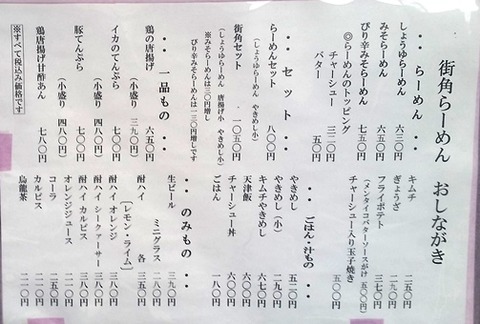 街角らーめん おしながき
・・ らーめん ・・
しょうゆらーめん 六三〇
みそらーめん 六五〇
ぴり辛みそらーめん 七五〇
◎らーめんのトッピング
チャーシュー 三二〇
バター 五〇
・・ セット ・・
らーめんセット 八〇〇
(しょうゆらーめん やきめし小)
街角セット 一〇五〇
(しょうゆらーめん 唐揚げ小 やきめし小)
※みそらーめんは三〇円増し
ぴり辛みそらーめんは一三〇円増しです
・・ 一品もの ・・
鶏の唐揚げ 六五〇
(小盛り) 三九〇
イカのてんぷら 七〇〇
(小盛り) 四八〇
豚てんぷら 七〇〇
(小盛り) 四八〇
鶏唐揚げ甘酢あん 七八〇
※すべて税込み価格です
キムチ 二五〇
ぎょうざ 二九〇
フライポテト 三七〇
(メンタイコバターソースがけ 五〇〇)
チャーシュー入り玉子焼き 五〇〇
・・ ごはん・汁もの ・・
やきめし 五二〇
やきめし(小) 二九〇
キムチやきめし 六七〇
天津飯 六〇〇
チャーシュー丼 六〇〇
ごはん 一八〇
・・ のみもの ・・
生ビール 三九〇
ミニグラス 二八〇
酎ハイ 各 三五〇
[レモン・ライム]
酎ハイ オレンジ 三八〇
酎ハイ シークァーサー 三八〇
酎ハイ カルピス 三八〇
オレンジジュース 二二〇
コーラ 二五〇
カルピス 二二〇
烏龍茶 二二〇